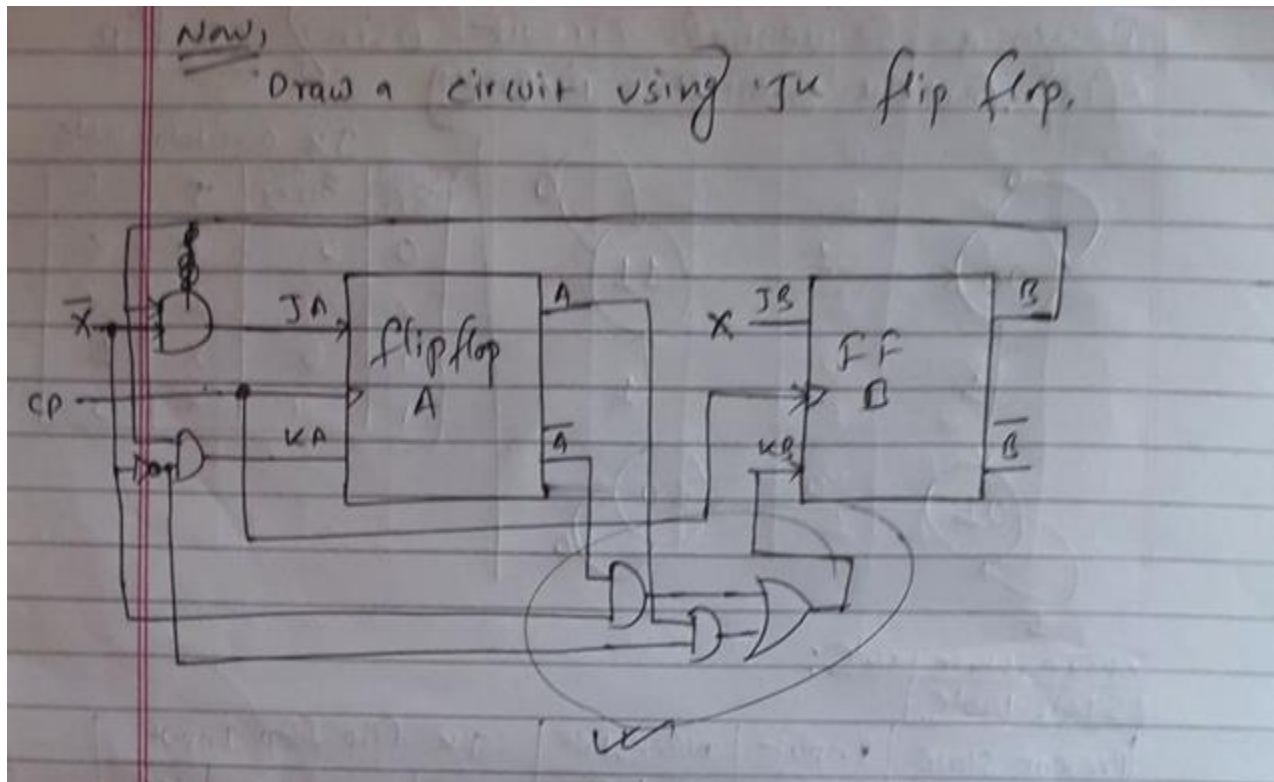 Now,
Draw a circuit using JK flip flop.
X̅
JA
flipflop
A
KA
A
A̅
CP
X
JB
FF
B
KB
B
B̅